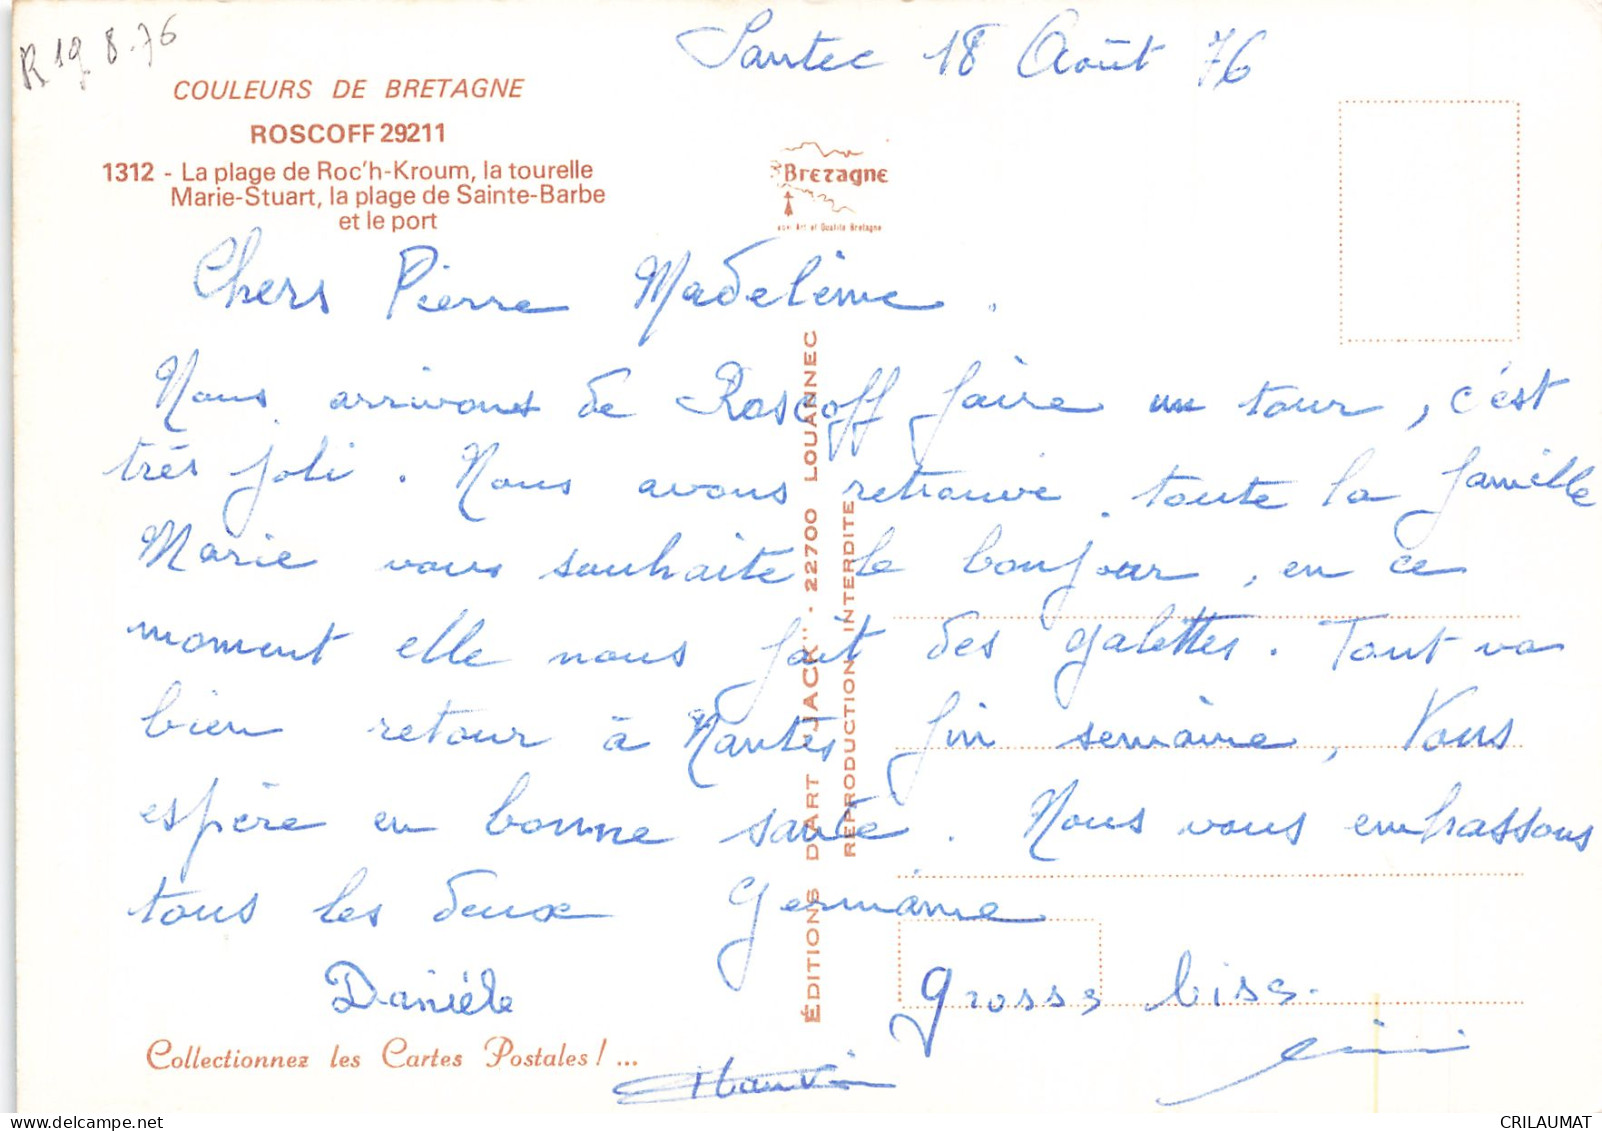 R 19 8-76
Santec 18 Août 76
COULEURS DE BRETAGNE
ROSCOFF 29211
1312 - La plage de Roc'h-Kroum, la tourelle
Marie-Stuart, la plage de Sainte-Barbe
et le port
Brezagne
Art et Qualité Bretagne
Chers Pierre Madeleine.
Nous arrivons de Roscoff faire un tour, c'est
très joli. Nous avons retrouvé toute la famille
Marie vous souhaite le bonjour, en ce
moment elle nous fait des galettes. Tout va
bien retour à Nantes fin semaine, Vous
espère en bonne santé. Nous vous embrassons
tous les deux Germaine
Danièle
gross bise.
ÉDITIONS D'ART "JACK" - 22700 LOUANNEC
REPRODUCTION INTERDITE
Collectionnez les Cartes Postales ! ...
CRILAUMAT